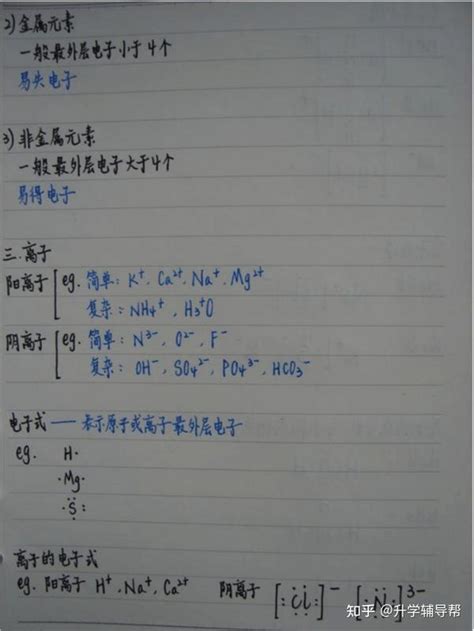 2) 金属元素
一般最外层电子小于4个
易失电子
3) 非金属元素
一般最外层电子大于4个
易得电子
三.离子
阳离子 [ eg. 简单: K⁺. Ca²⁺. Na⁺. Mg²⁺
复杂: NH₄⁺. H₃⁺O
阴离子 [ eg. 简单: N³⁻. O²⁻. F⁻
复杂: OH⁻. SO₄²⁻. PO₄³⁻. HCO₃⁻
电子式 —— 表示原子或离子最外层电子
eg. H·
·Mg·
·S:
离子的电子式
eg. 阳离子 H⁺. Na⁺. Ca²⁺ 阴离子 [:Cl:]⁻ [:N:]³⁻
知乎 @升学辅导帮